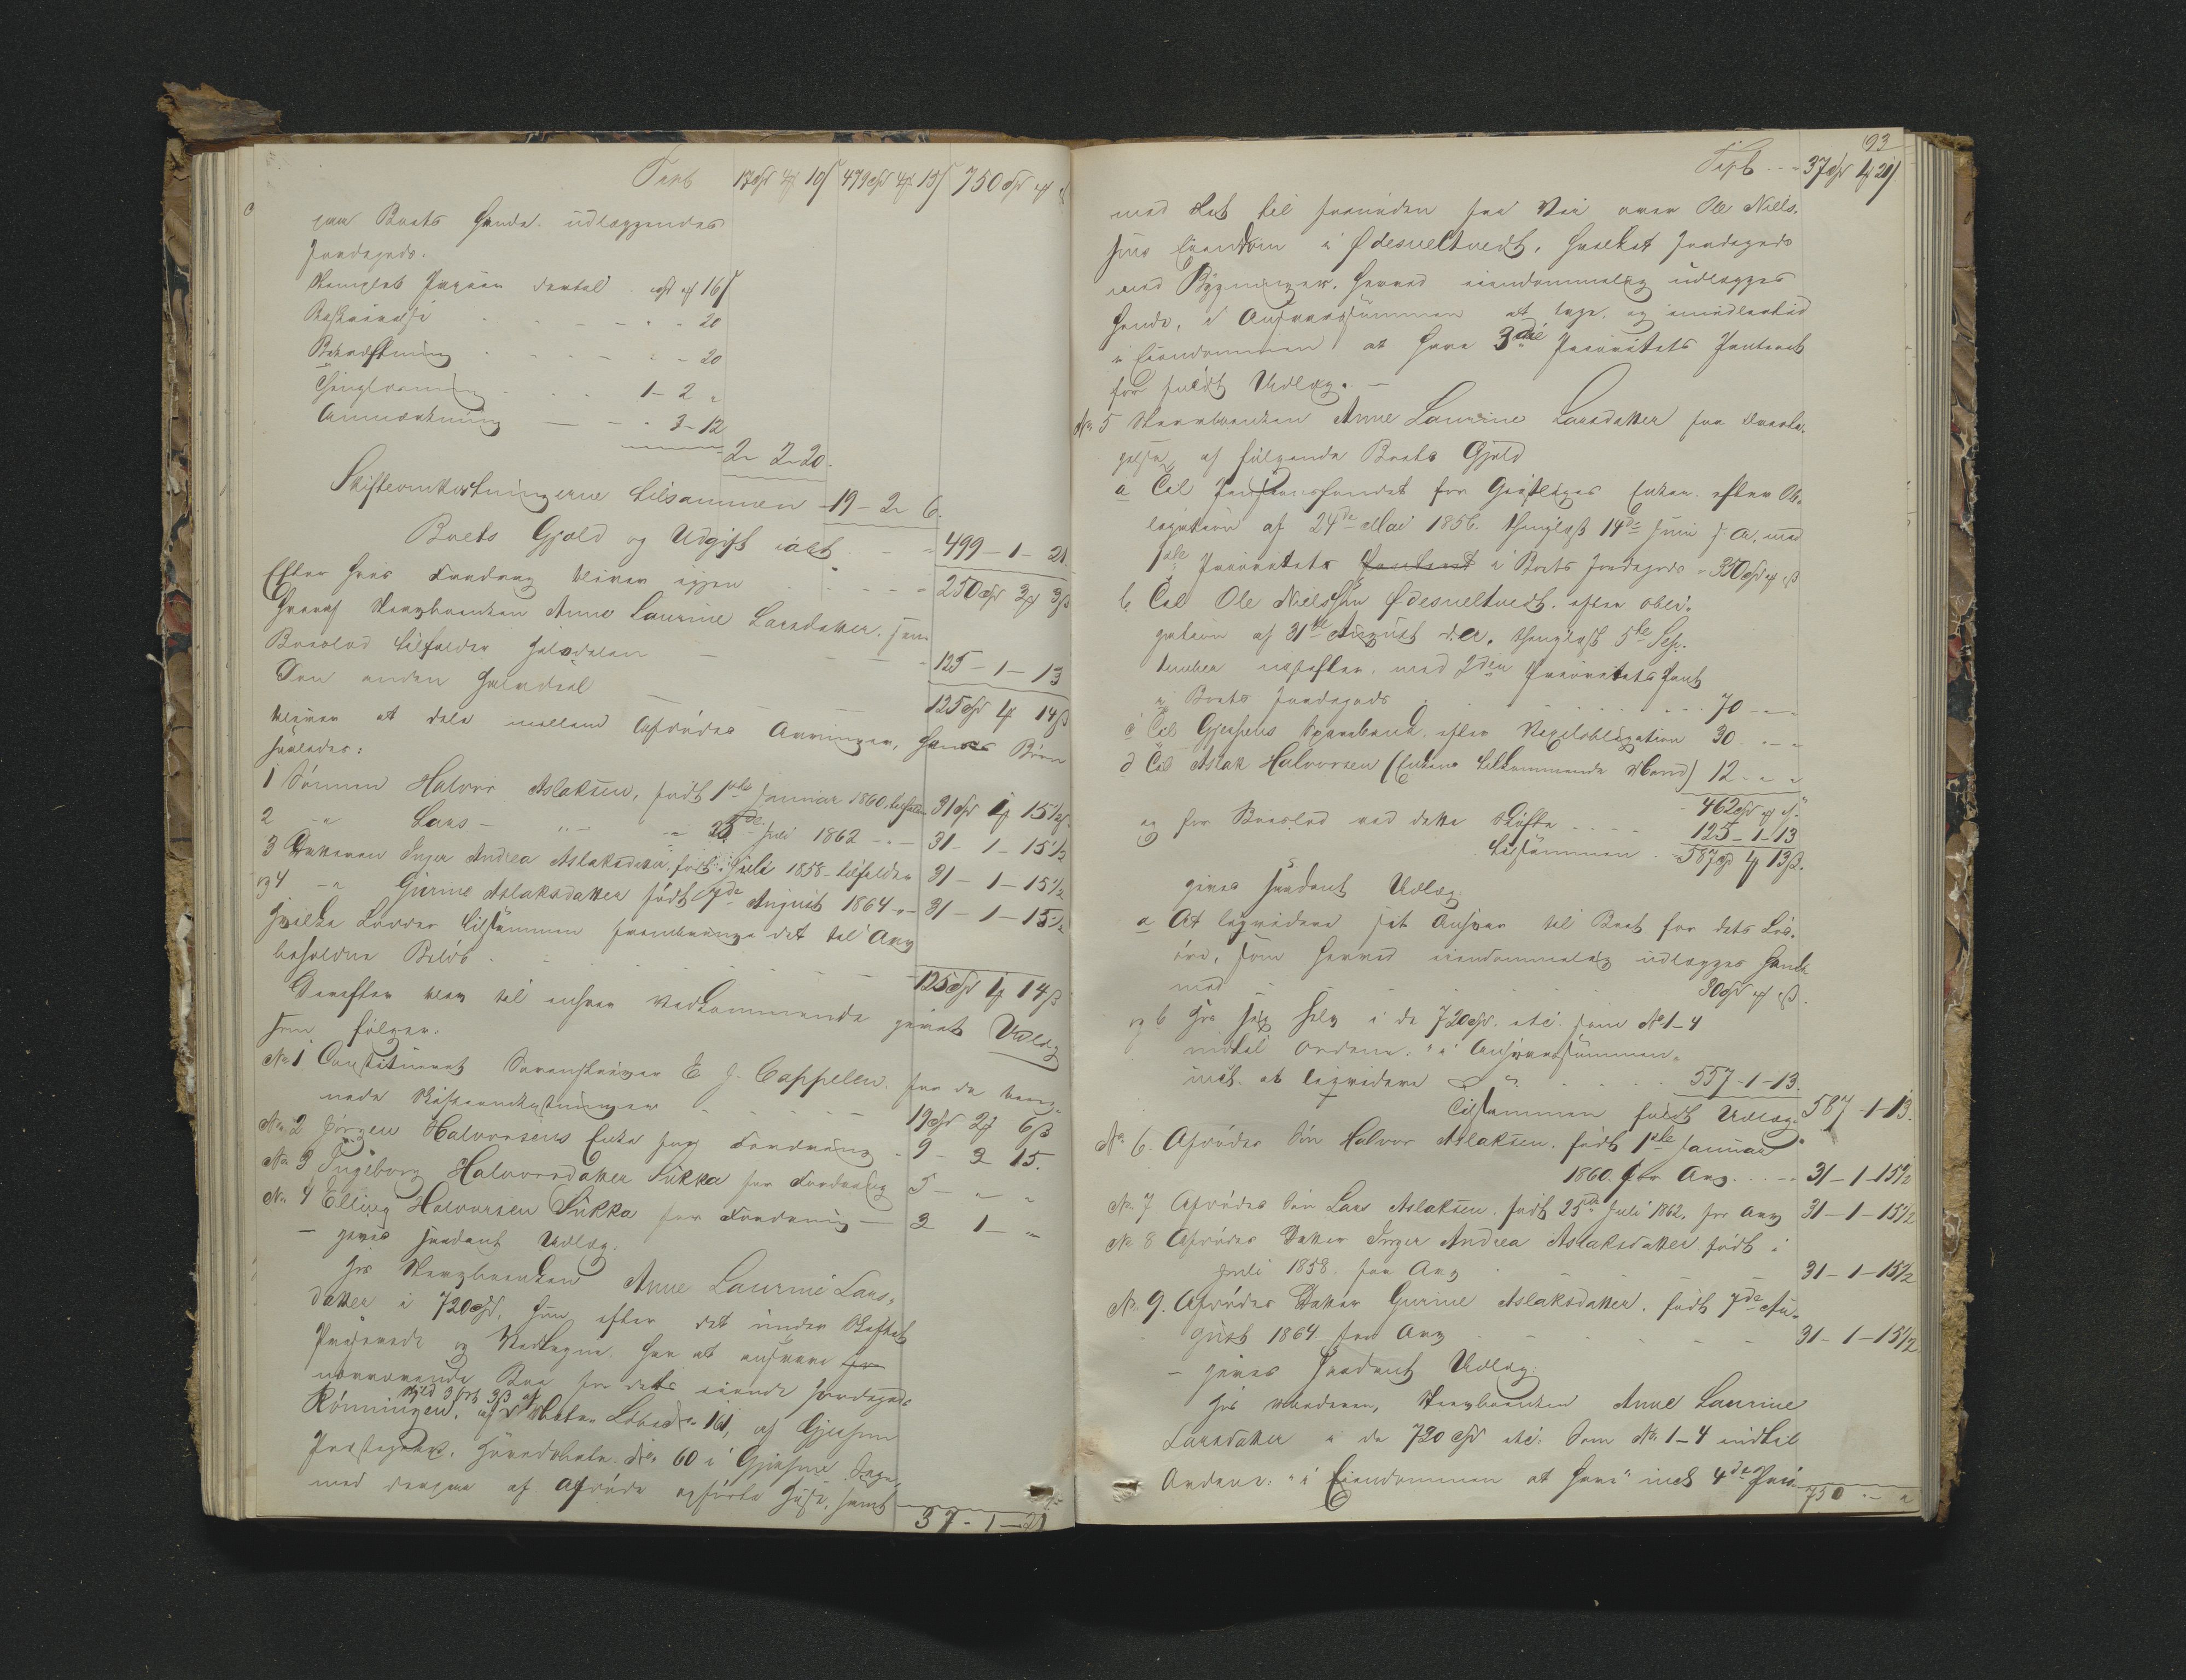 Trsp. 17 Spd 4 ort 10 ß 479 Spd 4 ort 15 ß 750 Spd
paa Boets Gjæld udlæggendes
Jordegods.
Stemplet Papiir dertil 16 ß
Beskrivelse 20
Bekræftning 20
Thinglæsning 1 - 2 "
Anmærkning 3 - 12
2 - 2 - 20
Skifteomkostningerne tilsammen 19 - 2 6.
Boets Gjæld og Udgift ialt 499 - 1 - 21.
Efter hvis Fradrag bliver igjen 250 Spd 3 ort 3 ß
hvoraf Stervboenken Anne Laurine Larsdatter, som
Boeslod tilfalder Halvdelen 125 - 1 - 13
Den anden Halvdeel 125 Spd 1 ort 14 ß
bliver at dele mellem Afdødes Arvinger, hans Børn
saaledes:
1 Sønnen Halvor Aslaksen, født 1ste Januar 1860, tilfalder 31 Spd 1 ort 15 1/2 ß
2 -"- Lars -"- 25de Juli 1862 31 - 1 - 15 1/2
3 Datteren Inger Andrea Aslaksdatter, født i Juli 1858 tilfalder 31 - 1 - 15 1/2
og 4 -"- Gurine Aslaksdatter født 7de August 1864 31 - 1 - 15 1/2
hvilke Lodder tilsammen frembringe det til Arv
beholdne Beløb 125 Spd 1 ort 14 ß
Derefter blev til enhver Vedkommende gjort Udlæg
som følger.
No 1 Constitueret Sorenskriver E J. Cappelen for de bereg-
nede Skifteomkostninger 19 Spd 2 ort 6 ß
No 2 Jørgen Halvorsens Enke for Fordring 9 - 2 15.
No 3 Ingeborg Halvorsdatter Sukka for Fordring 5 - " "
No 4 Elling Halvorsen Sukka for Fordring 3 1 - "
- gives saadant Udlæg.
hos Stervboenken Anne Laurine Lars-
datter i 720 Spd, hun efter det under Skiftet
Passerede og Vedtagne har at ansvare
nærværende Boe for dets eiende Jordegods
Rønningen, Matr. Løbe No 161, af Gjerpen
Præstegjeld. Hovedmatr. No 60 i Gjerpens Sogn
med derpaa af Afdøde opførte Huse, samt
37 - 1 - 21
93
Trsp. 37 Spd 1 ort 21 ß
med Ret til fornøden fri Vei over Ole Niels-
sens Eiendom i Ødesneltvedt, hvilket Jordegods
med Bygninger herved eiendommelig udlægges
hende, i Ansvarssummen at tage, og imidlertid
i Eiendommen at have 3die Prioritets Panteret
for fuldt Udlæg. -
No 5 Stervboenken Anne Laurine Larsdatter for Overta-
gelse af følgende Boets Gjæld
a Til Pensionsfondet for Geistliges Enker efter Ob-
ligation af 24de Mai 1856. thinglæst 14de Juni s. A. med
1ste Prioritets Panteret i Boets Jordegods 350 Spd
b Til Ole Nielssen Ødesneltvedt efter Obli-
gation af 31te August d. A. thinglæst 5te Sep-
tember næstefter med 2den Prioritets Pant
i Boets Jordegods 70 - " - "
c Til Gjerpens Sparebank efter Vexelobligation 30 - " - "
d Til Aslak Halvorsen (Enkens tilkommende Mand) 12 - " "
462 Spd
og for Boeslod ved dette Skifte 125 - 1 - 13
tilsammen 587 Spd 1 ort 13 ß.
gives saadant Udlæg
a At liqvidere sit Ansvar til Boet for dets Løs-
øre, som herved eiendommelig udlægges hende
med 30 Spd
og b hos sig selv i de 720 Spd etc. som No 1-4
indtil Ordene: "i Ansvarssummen"
incl. at liqvidere 557 - 1 - 13.
Tilsammen fuldt Udlæg. 587 - 1 - 13.
No 6. Afdødes Søn Halvor Aslaksen, født 1ste Januar
1860 for Arv 31 - 1 - 15 1/2
No 7 Afdødes Søn Lars Aslaksen, født 25de Juli 1862, for Arv 31 - 1 - 15 1/2
No 8 Afdødes Datter Inger Andrea Aslaksdatter født i
Juli 1858 for Arv 31 - 1 - 15 1/2
No 9. Afdødes Datter Gurine Aslaksdatter, født 7de Au-
gust 1864 for Arv 31 - 1 - 15 1/2
- gives saadant Udlæg.
hos Moderen, Stervboenken Anne Laurine
Larsdatter i de 720 Spd etc. som No 1-4 indtil
Ordene: "i Eiendommen at have" incl. 4de Prio-
750 - "